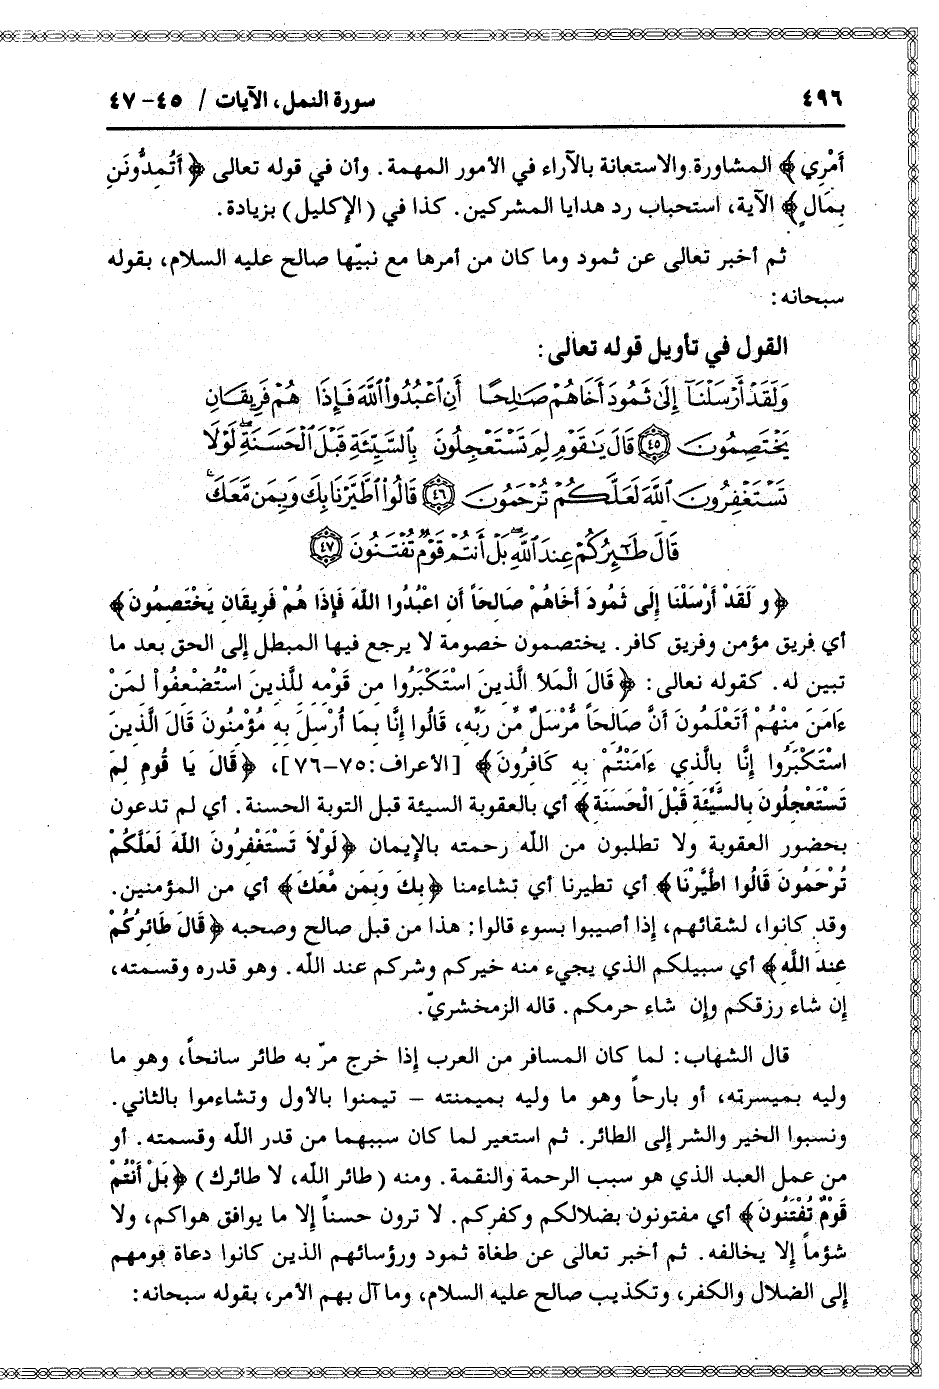 ٤٩٦ سورة النمل، الآيات / ٤٥-٤٧
أَمْرِي﴾ المشاورة والاستعانة بالآراء في الأمور المهمة. وأن في قوله تعالى ﴿أَتُمِدُّونَنِ
بِمَالٍ﴾ الآية، استحباب رد هدايا المشركين. كذا في (الإكليل) بزيادة.
ثم أخبر تعالى عن ثمود وما كان من أمرها مع نبيّها صالح عليه السلام، بقوله
سبحانه:
القول في تأويل قوله تعالى:
وَلَقَدْ أَرْسَلْنَآ إِلَىٰ ثَمُودَ أَخَاهُمْ صَٰلِحًا أَنِ ٱعْبُدُوا۟ ٱللَّهَ فَإِذَا هُمْ فَرِيقَانِ
يَخْتَصِمُونَ ٤٥ قَالَ يَٰقَوْمِ لِمَ تَسْتَعْجِلُونَ بِٱلسَّيِّئَةِ قَبْلَ ٱلْحَسَنَةِ ۖ لَوْلَا
تَسْتَغْفِرُونَ ٱللَّهَ لَعَلَّكُمْ تُرْحَمُونَ ٤٦ قَالُوا۟ ٱطَّيَّرْنَا بِكَ وَبِمَن مَّعَكَ ۚ
قَالَ طَٰٓئِرُكُمْ عِندَ ٱللَّهِ ۖ بَلْ أَنتُمْ قَوْمٌ تُفْتَنُونَ ٤٧
﴿وَلَقَدْ أَرْسَلْنَا إِلَى ثَمُودَ أَخَاهُمْ صَالِحَاً أَنِ اعْبُدُوا اللَّهَ فَإِذَا هُمْ فَرِيقَانِ يَخْتَصِمُونَ﴾
أي فريق مؤمن وفريق كافر. يختصمون خصومة لا يرجع فيها المبطل إلى الحق بعد ما
تبين له. كقوله تعالى: ﴿قَالَ الْمَلأُ الَّذِينَ اسْتَكْبَرُوا مِن قَوْمِهِ لِلَّذِينَ اسْتُضْعِفُواْ لِمَنْ
ءَامَنَ مِنْهُمْ أَتَعْلَمُونَ أَنَّ صَالِحَاً مُّرْسَلٌ مِّن رَبِّهِ، قَالُوا إِنَّا بِمَا أُرْسِلَ بِهِ مُؤْمِنُونَ قَالَ الَّذِينَ
اسْتَكْبَرُوا إِنَّا بِالَّذِي ءَامَنْتُمْ بِهِ كَافِرُونَ﴾ [الأعراف:٧٥-٧٦]، ﴿قَالَ يَا قَومِ لِمَ
تَسْتَعْجِلُونَ بِالسَّيِّئَةِ قَبْلَ الْحَسَنَةِ﴾ أي بالعقوبة السيئة قبل التوبة الحسنة. أي لم تدعون
بحضور العقوبة ولا تطلبون من الله رحمته بالإيمان ﴿لَوْلاَ تَسْتَغْفِرُونَ اللَّهَ لَعَلَّكُمْ
تُرْحَمُونَ قَالُوا اطَّيَّرْنَا﴾ أي تطيرنا أي تشاءمنا ﴿بِكَ وَبِمَن مَّعَكَ﴾ أي من المؤمنين.
وقد كانوا، لشقائهم، إذا أصيبوا بسوء قالوا: هذا من قبل صالح وصحبه ﴿قَالَ طَائِرُكُمْ
عِندَ اللَّهِ﴾ أي سبيلكم الذي يجيء منه خيركم وشركم عند الله. وهو قدره وقسمته،
إن شاء رزقكم وإن شاء حرمكم. قاله الزمخشريّ.
قال الشهاب: لما كان المسافر من العرب إذا خرج مرّ به طائر سانحاً، وهو ما
وليه بميسرته، أو بارحاً وهو ما وليه بميمنته – تيمنوا بالأول وتشاءموا بالثاني.
ونسبوا الخير والشر إلى الطائر. ثم استعير لما كان سببهما من قدر الله وقسمته. أو
من عمل العبد الذي هو سبب الرحمة والنقمة. ومنه (طائر الله، لا طائرك) ﴿بَلْ أَنْتُمْ
قَوْمٌ تُفْتَنُونَ﴾ أي مفتونون بضلالكم وكفركم. لا ترون حسناً إلا ما يوافق هواكم، ولا
شؤماً إلا يخالفه. ثم أخبر تعالى عن طغاة ثمود ورؤسائهم الذين كانوا دعاة قومهم
إلى الضلال والكفر، وتكذيب صالح عليه السلام، وما آل بهم الأمر، بقوله سبحانه: